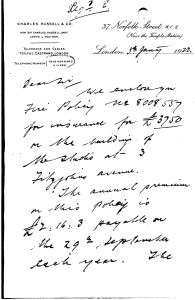 CHARLES RUSSELL & CO.
37, Norfolk Street, W.C.2
(Near the Temple Station)
TELEPHONE AND CABLES:
London 5th January 1922.
TELEPHONE NUMBERS
Dear Sir
We enclose you
Fire Policy No 8008557
for insurance for £3750
on the building of
the studio at 3
Fitzjohns Avenue.
The annual premium
on this Policy is
£2:16:3 payable on
the 29th September
each year. The